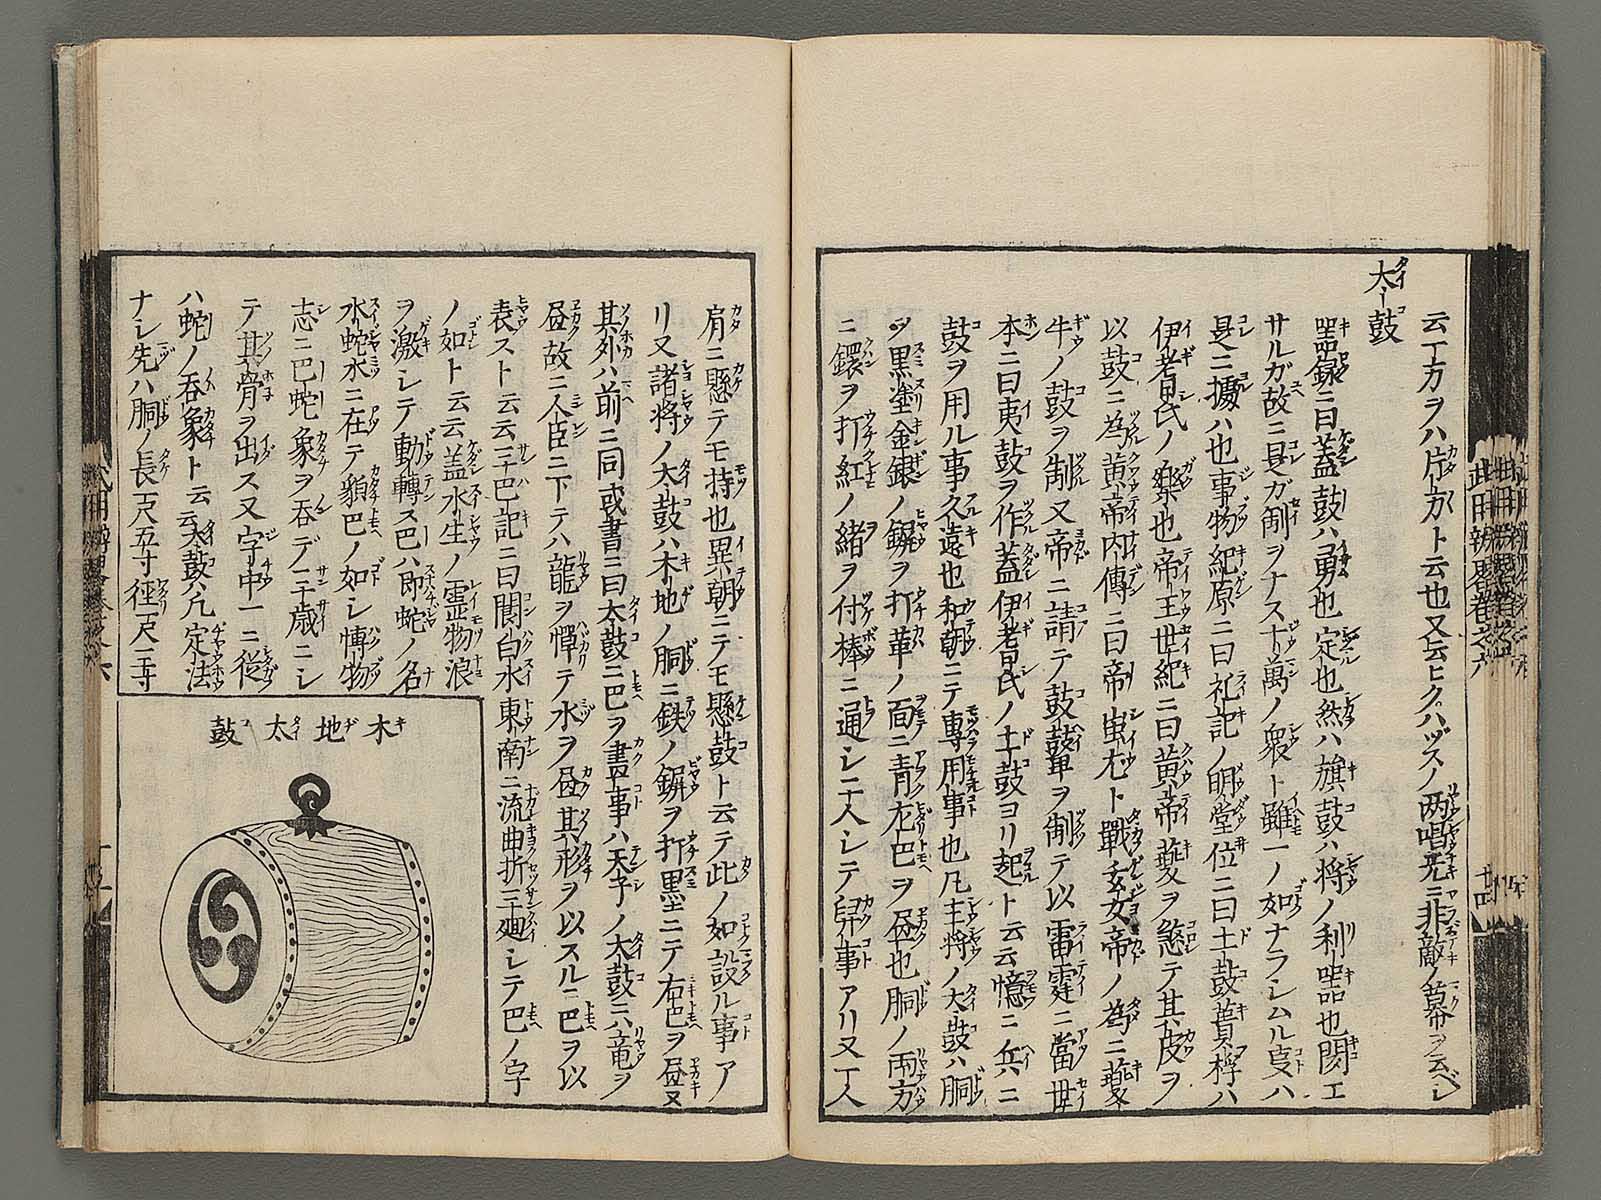 云一方ヲハ片方ト云也又坛ヒクハヅスノ两唱共ニ非敵ノ幕ヲ云ベシ
太鼓
噐録ニ曰蓋鼓ハ勇也定也然ハ旗鼓ハ将ノ利噐也閧エ
サルガ故ニ是ガ制ヲナス十萬ノ衆ト雖一ノ如ナラシムル叓ハ
是ニ據ハ也事物紀原ニ曰礼記ノ明堂位ニ曰土鼓蕢桴ハ
伊耆氏ノ樂也帝王世紀ニ曰黄帝夔ヲ慾テ其皮ヲ
以鼓ニ為黄帝内傳ニ曰帝蚩尤ト戰玄女帝ノ為ニ夔
牛ノ鼓ヲ制又帝ニ請テ鼓鼙ヲ制テ以雷霆ニ當世
本ニ曰夷鼓ヲ作蓋伊耆氏ノ土鼓ヨリ起ト云云憶ニ兵ニ
鼓ヲ用ル事久遠也和朝ニテ專用事也凡主将ノ太鼓ハ胴
ヲ黒塗金銀ノ鋲ヲ打革ノ面ニ青左巴ヲ昼也胴ノ両方
ニ鐶ヲ打紅ノ緒ヲ付棒ニ通シ二人シテ舁事アリ又一人
肩ニ懸テモ持也異朝ニテモ懸鼓ト云テ此ノ如設ル事ア
リ又諸将ノ太鼓ハ木地ノ胴ニ鉄ノ鋲ヲ打墨ニテ右巴ヲ昼又
其外ハ前ニ同或書ニ曰太鼓ニ巴ヲ畫事ハ天子ノ太鼓ニハ竜ヲ
昼故ニ人臣ニ下テハ龍ヲ憚テ水ヲ昼其形ヲ以スルニ巴ヲ以
表スト云云三巴記ニ曰閬白水東南ニ流曲折三廻シテ巴ノ字
ノ如ト云云蓋水生ノ霊物浪
ヲ激シテ動轉ス巴ハ即蛇ノ名
水蛇水ニ在テ貌巴ノ如シ博物
志ニ巴蛇象ヲ吞デ三歳ニシ
テ其骨ヲ出ス又字中一ニ從
ハ蛇ノ吞象ト云云太鼓ハ凡定法
ナシ先ハ胴ノ長一尺五寸徑一尺二寸
木地太鼓
武田辨畧巻之六
十四